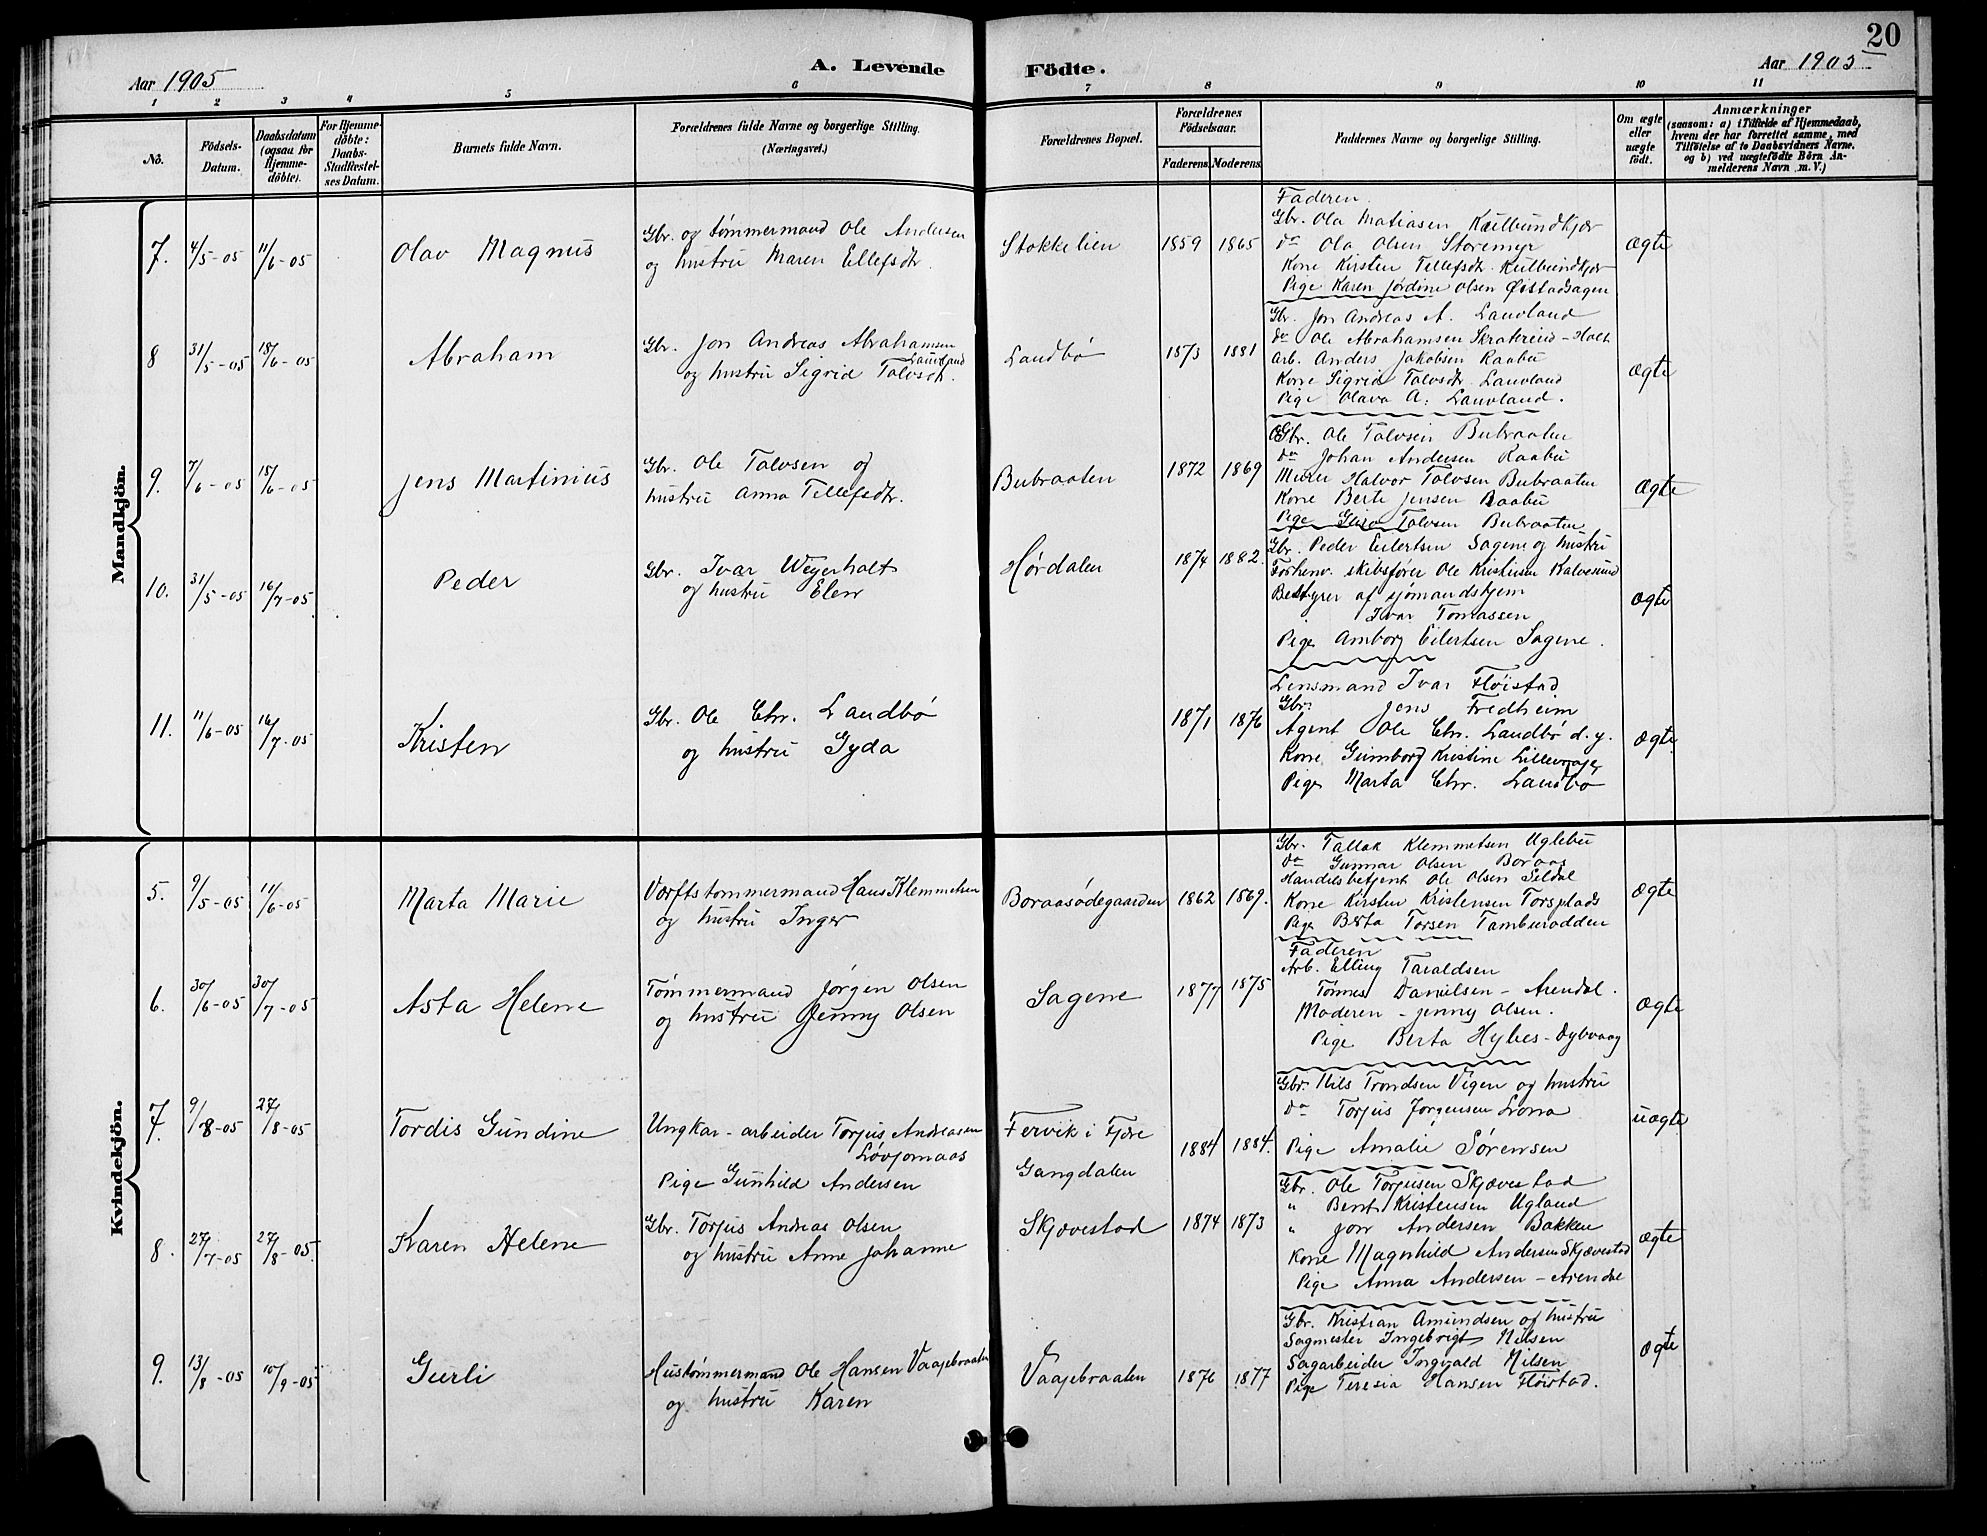 20
Aar 1905
A. Levende
Födte.
Aar 1905
1 2 3 4 5 6 7 8 9 10 11
Nö.
Födsels-
Datum.
Daabsdatum
(ogsaa for
Hjemme-
döbte).
For Hjemme-
döbte:
Daabs-
Stadfæstel-
ses Datum.
Barnets fulde Navn.
Forældrenes fulde Navne og borgerlige Stilling.
(Næringsvei.)
Forældrenes Bopæl.
Forældrenes
Födselsaar.
Faderens.
Moderens.
Faddernes Navne og borgerlige Stilling.
Om ægte
eller
uægte
födt.
Anmærkninger
(saasom: a) i Tilfælde af Hjemmedaab,
hvem der har forrettet samme, med
Tilföielse af to Daabsvidners Navne.
og b) ved uægtefödte Börn An-
melderens Navn m. V.)
Mandkjön.
7. 4/5-05 11/6-05
Olav Magnus
Gbr. og tømmermand Ole Andersen
og hustru Maren Ellefsdtr.
Stokkelien
1859 1865
Faderen.
Gbr. Ola Matiasen Kulbundkjær
do Ola Olsen Storemyr
Kone Kirsten Tellefsdtr. Kulbundkjær
Pige Karen Jørdine Olsen Øistadsagen
Ægte
8 31/5-05 18/6-05
Abraham
Gbr. Jon Andreas Abrahamsen
Lauvland
og hustru Sigrid Talvsdtr.
Landbø
1873 1881
Gbr. Jon Andreas A. Lauvland
do Ole Abrahamsen - Holt
Arb. Anders Jakobsen Raabu
Kone Sigrid Talvsdtr. Lauvland
Pige Olava A. Lauvland.
Ægte
9. 7/6-05 18/6-05
Jens Martinius
Gbr. Ole Talvsen og
hustru Anna Tellefsdtr.
Bubraaten
1872 1869
Gbr. Ole Talvsen Bubraaten
do Johan Andersen Raabu
Murer Halvor Talvsen Bubraaten
Kone Berte Jensen Raabu
Pige Talvsen Bubraaten
Ægte
10. 31/5-05 16/7-05
Peder
Gbr. Ivar Weyerholt
og hustru Elen
Hørdalen
1874 1882.
Gbr. Peder Eilertsen Sagene og hustru
Forhenv. skibsfører Ole Kristensen Kalvesund
Bestyrer af sjømandshjem
Ivar Tomassen
Pige Amborg Eilertsen Sagene.
Ægte
11. 11/6-05 16/7-05
Kristen
Gbr. Ole Chr. Landbø
og hustru Gyda
1871 1876
Lensmand Ivar Fløistad
Gbr. Jens Fredheim
Agent Ole Chr. Landbø d.y.
Kone Gunborg Kristine
Pige Marta Chr. Landbø
Ægte
Kvindekjön.
5. 9/5-05 11/6-05
Marta Marie
Værftstømmermand Hans Klemmetsen
og hustru Inger
Boraasødegaarden
1862 1869.
Gbr. Tallak Klemmetsen Uglebu
do Gunnar Olsen Boraas
Handelsbetjent Ole Olsen Seldal
Kone Kirsten Kristensen Torsplads
Pige Berta Torsen Tamburodden
Ægte
6. 30/6-05 30/7-05
Asta Helene
Tømmermand Jörgen Olsen
og hustru Jenny Olsen
Sagene
1877 1875
Faderen
Arb. Elling Taraldsen
Tønnes Danielsen - Arendal.
Moderen - Jenny Olsen.
Pige Berta Hybes - Dybvaag
Ægte
7. 9/8-05 27/8-05
Tordis Gundine
Ungkar - arbeider Torjus Andreasen
Løvjomaas
Pige Gunhild Andersen
Fervik i Fjære
Gangdalen
1884 1884.
Gbr. Nils Trondsen Vigen og hustru
do Torjus Jørgensen Lona
Pige Amalie Sørensen
uægte
8. 27/7-05 27/8-05.
Karen Helene
Gbr. Torjus Andreas Olsen
og hustru Anne Johanne
Skjævestad
1874 1873
Gbr. Ole Torjusen Skjævestad
" Bent Kristensen Ugland
" Jon Andersen Bakken
Kone Magnhild Andersen Skjævestad
Pige Anna Andersen - Arendal
Ægte
9. 13/8-05 10/9-05
Gurli
Hustømmermand Ole Hansen Vaajebraaten
og hustru Karen
Vaajebraaten
1876 1877
Gbr. Kristian Amundsen og hustru
Sagmester Ingebrigt Nilsen
Sagarbeider Ingvald Nilsen
Pige Teresia Hansen Fløistad.
Ægte